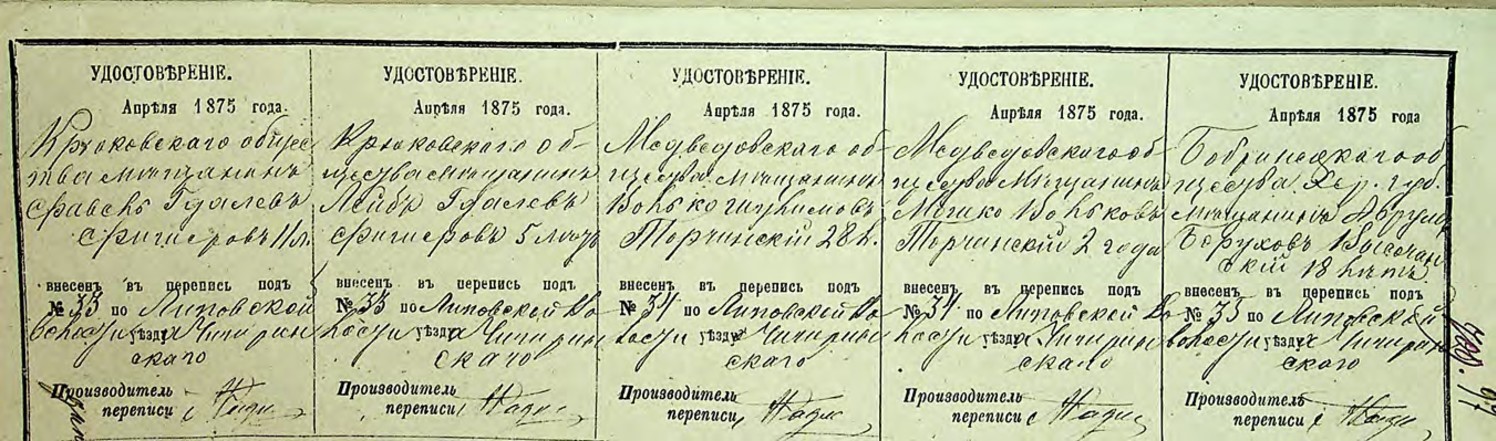 УДОСТОВѢРЕНІЕ.
Апрѣля 1875 года.
Крюковскаго общес
тва мѣщанинъ
Гдалевъ
внесен въ перепись подъ
№ 33 по Липовской
волости уѣзда Чигирин
скаго
Производитель
переписи
УДОСТОВѢРЕНІЕ.
Апрѣля 1875 года.
Крюковскаго об-
щества мѣщанинъ
Лейба Гдалевъ
5 лѣтъ
внесенъ въ перепись подъ
№ 33 по Липовской во
лости уѣзда Чигирин
скаго
Производитель
переписи
УДОСТОВѢРЕНІЕ.
Апрѣля 1875 года.
Медведовскаго об
щества мѣщанинъ
Торчинскій 28 л.
внесенъ въ перепись подъ
№ 34 по Липовской во
лости уѣзда Чигирин
скаго
Производитель
переписи
УДОСТОВѢРЕНІЕ.
Апрѣля 1875 года.
Медведовскаго об
щества мѣщанинъ
Мошко
Торчинскій 2 года
внесенъ въ перепись подъ
№ 34 по Липовской во
лости уѣзда Чигирин
скаго
Производитель
переписи
УДОСТОВѢРЕНІЕ.
Апрѣля 1875 года
Бобринецкаго об
щества Хер. губ.
мѣщанинъ Аврумъ
Боруховъ Высочан
скій 18 лѣтъ
внесенъ въ перепись подъ
№ 35 по Липовской
волости уѣзда Чигирин
скаго
Производитель
переписи